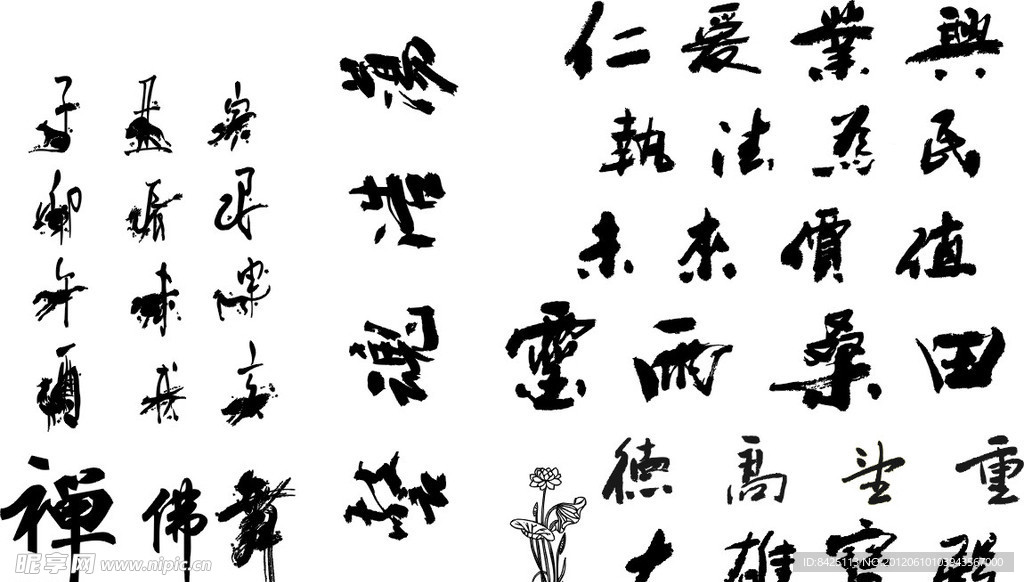 子 丑 寅
卯 辰 巳
午 未 申
酉 戌 亥
禪 佛 舞
仁爱業興
執法為民
未來價值
靈雨桑田
德高望重
大雄寶殿
昵享网 www.nipic.cn
ID:8426113 NO:20120610103943567000